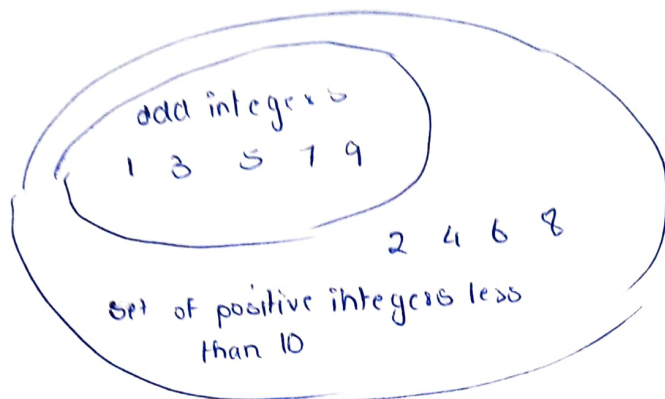 odd integers
1 3 5 7 9
2 4 6 8
set of positive integers less
than 10